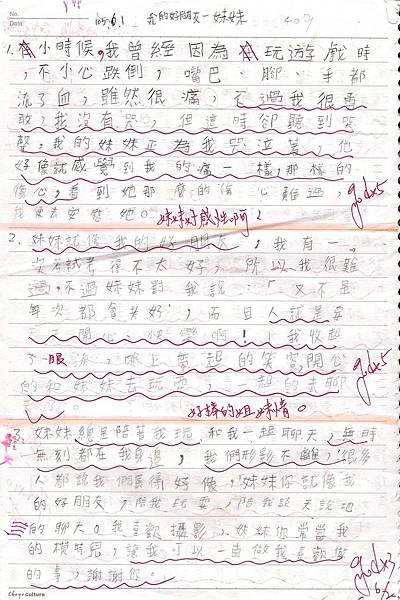 No.
Date
105.6.1 我的好朋友—妹妹 409
1. 小時候,我曾經因為玩遊戲時
,不小心跌倒,嘴巴、腳、手都
流了血,雖然很痛,不過我很勇
敢,我沒有哭,但這時卻聽到哭
聲,我的妹妹正為我哭泣著,他
好像就感覺到我的痛一樣,那樣的
傷心,看到她那麼的傷心難過,
我便去安慰她。
妹妹好感性啊! godx5
2. 妹妹就像我的好朋友,我有一
次考試考得不太好,所以我很難
過,不過妹妹對我說:「又不是
每次都會考好,而且人就是要
開心、快樂啊!」我收起
了眼淚,的笑容,開心
的和妹妹去玩耍,一起的去聊
godx5
好棒的姐妹情。
3. 妹妹總是陪著我玩,和我一起聊天,無時
無刻都在我身邊,我們形影不離,很多
人都說我們長得好像,妹妹你就像我
的好朋友,陪我玩耍,陪我談天說地
的聊天。我喜歡攝影,妹妹你常當我
的模特兒,讓我可以一直做我喜歡做
的事,謝謝你。
godx3
Cheyu culture